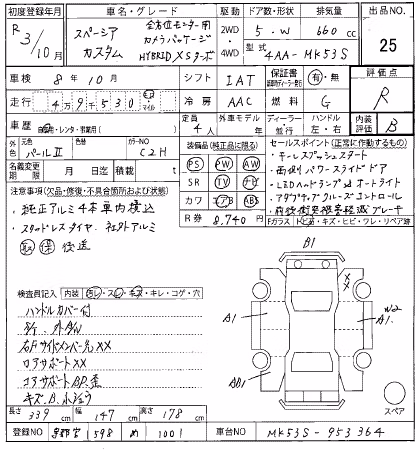 初度登録年月
R 3/10月
車名・グレード
スペーシア カスタム
全方位モニター用カメラパッケージ
HYBRID XSターボ
駆動
2WD
4WD
ドア数・形状
5・W
排気量
660 cc
型式
4AA-MK53S
出品NO.
25
車検
8年10月
シフト
IAT
保証書
有・無
評価点
R
走行
49530
冷房
AAC
燃料
G
車歴
自家用・レンタ・営業用( )
定員
4人
外車モデル
年
ディーラー
並行
ハンドル
左・右
内装
B
外色
元色
パールⅡ
色替
カラーNO
C2H
名義変更期限
月 日
月 日迄
積載
t
装備品(純正品に限る)
PS PW AW
SR TV ナビ
カワ エアB ABS
R券
8,740円
セールスポイント(正常に作動するもの)
・キーレスプッシュスタート
・両側パワースライドドア
・LEDヘッドランプ&オートライト
・アダプティブクルーズコントロール
・前後衝突被害軽減ブレーキ
Fガラス
キズ・ヒビ・ワレ・リペア跡
注意事項(欠品・修復・不具合箇所および状態)
・純正アルミ4本車内積込
・スタッドレスタイヤ、社外アルミ
取 保 後送
検査員記入
内装
キレ・コゲ・穴
ハンドルカバー付
右Fサイドメンバー先XX
コアサポートXX
コアサポートBP、歪
B1
A1
A1
W2
AB1
スペア
長さ
339cm
幅
147cm
高さ
178cm
登録NO
宇都宮 1598 め 1001
車台NO
MK53S-953364